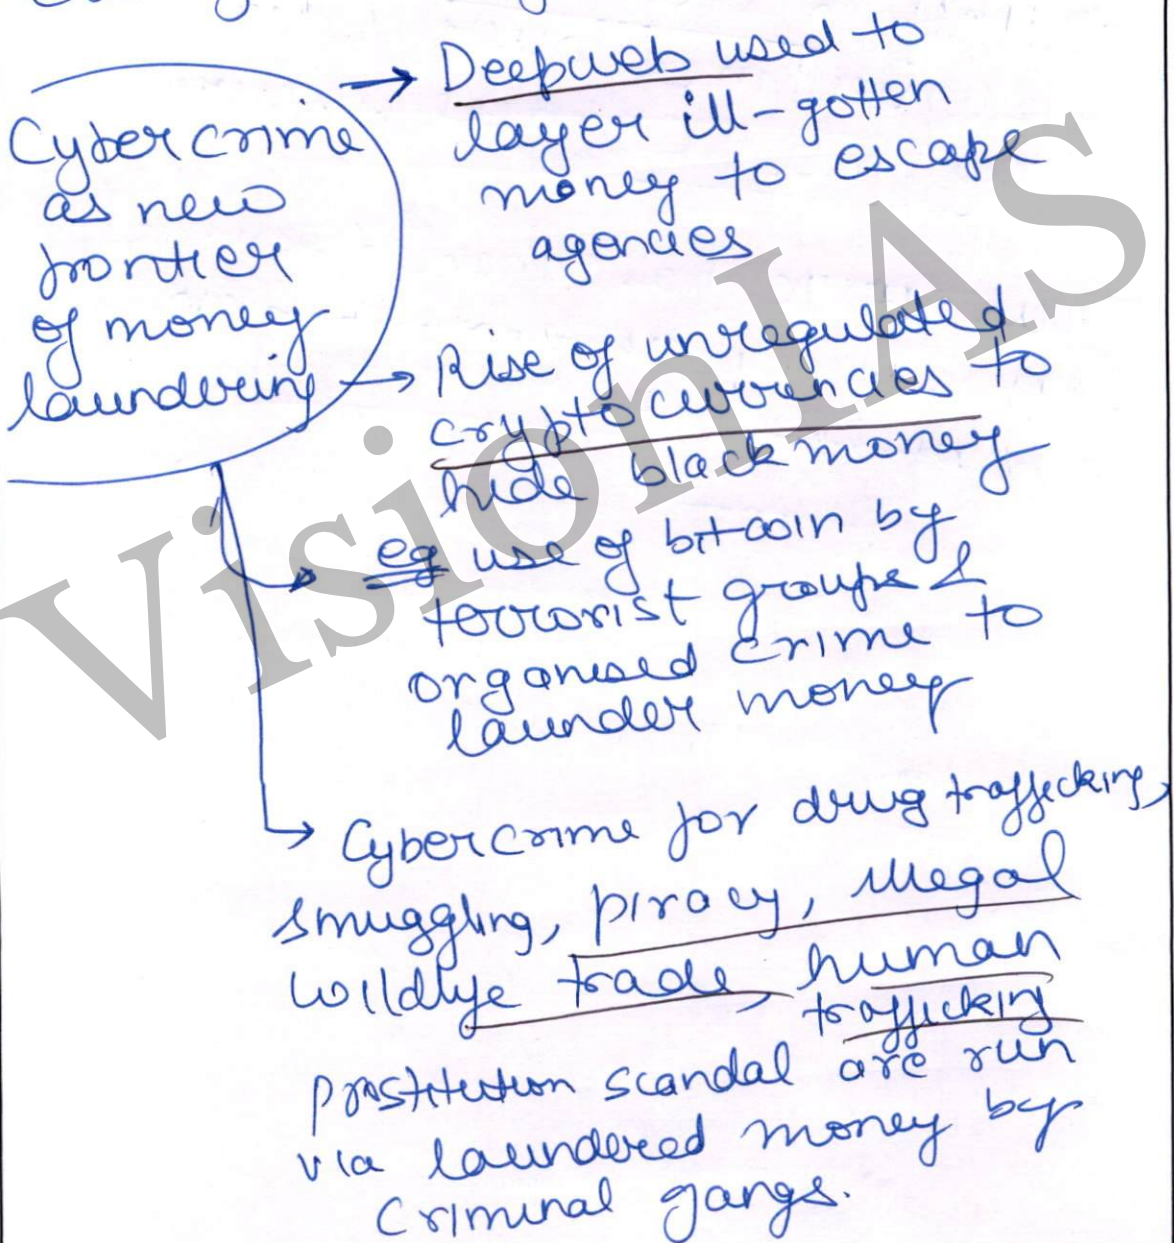 Cybercrime
as new
frontier
of money
laundering
→ Deepweb used to
layer ill-gotten
money to escape
agencies
→ Rise of unregulated
cryptocurrencies to
hide black money
eg use of bitcoin by
terrorist groups &
organised crime to
launder money
→ Cybercrime for drug trafficking,
smuggling, piracy, illegal
wildlife trade, human
trafficking
prostitution scandal are run
via laundered money by
criminal gangs.
VisionIAS